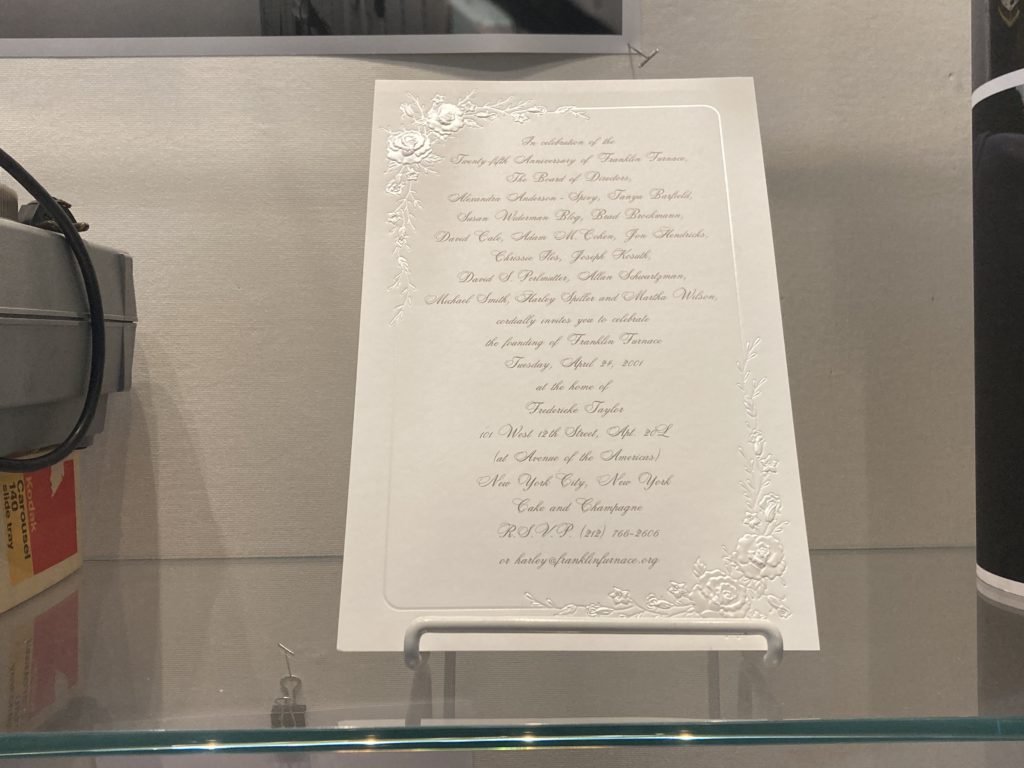 In celebration of the
Twenty-fifth Anniversary of Franklin Furnace,
The Board of Directors,
Alexandra Anderson-Spivy, Tanya Barfield,
Susan Widerman Bley, Brad Brockmann,
David Cale, Adam M. Cohen, Jon Hendricks,
Chrissie Iles, Joseph Kosuth,
David S. Perlmutter, Allan Schwartzman,
Michael Smith, Harley Spiller and Martha Wilson,
cordially invites you to celebrate
the founding of Franklin Furnace
Tuesday, April 24, 2001
at the home of
Fredericke Taylor
101 West 12th Street, Apt. 20L
(at Avenue of the Americas)
New York City, New York
Cake and Champagne
R.S.V.P. (212) 766-2606
or harley@franklinfurnace.org
Kodak
Carousel
140
slide tray